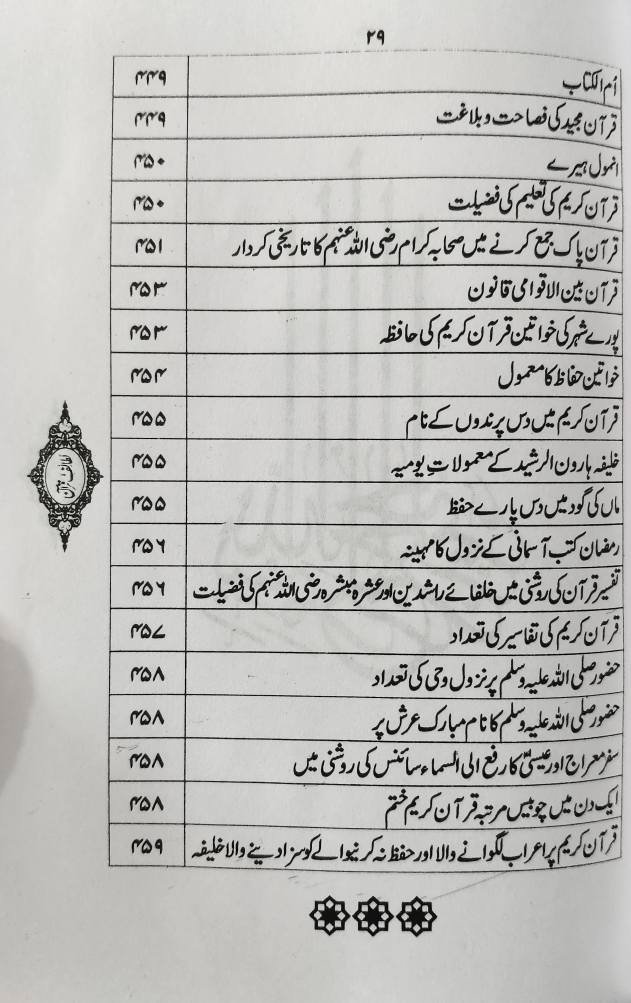 ۲۹
اُم الکتاب ۴۴۹
قرآن مجید کی فصاحت و بلاغت ۴۴۹
انمول ہیرے ۴۵۰
قرآن کریم کی تعلیم کی فضیلت ۴۵۰
قرآن پاک جمع کرنے میں صحابہ کرام رضی اللہ عنہم کا تاریخی کردار ۴۵۱
قرآن بین الاقوامی قانون ۴۵۳
پورے شہر کی خواتین قرآن کریم کی حافظہ ۴۵۳
خواتین حفاظ کا معمول ۴۵۴
قرآن کریم میں دس پرندوں کے نام ۴۵۵
خلیفہ ہارون الرشید کے معمولاتِ یومیہ ۴۵۵
ماں کی گود میں دس پارے حفظ ۴۵۵
رمضان کتب آسمانی کے نزول کا مہینہ ۴۵۶
تفسیر قرآن کی روشنی میں خلفائے راشدین اور عشرہ مبشرہ رضی اللہ عنہم کی فضیلت ۴۵۶
قرآن کریم کی تفاسیر کی تعداد ۴۵۷
حضور صلی اللہ علیہ وسلم پر نزول وحی کی تعداد ۴۵۸
حضور صلی اللہ علیہ وسلم کا نام مبارک عرش پر ۴۵۸
سفر معراج اور عیسیٰؑ کا رفع الی السماء سائنس کی روشنی میں ۴۵۸
ایک دن میں چوبیس مرتبہ قرآن کریم ختم ۴۵۸
قرآن کریم پر اعراب لگوانے والا اور حفظ نہ کرنیوالے کو سزا دینے والا خلیفہ ۴۵۹